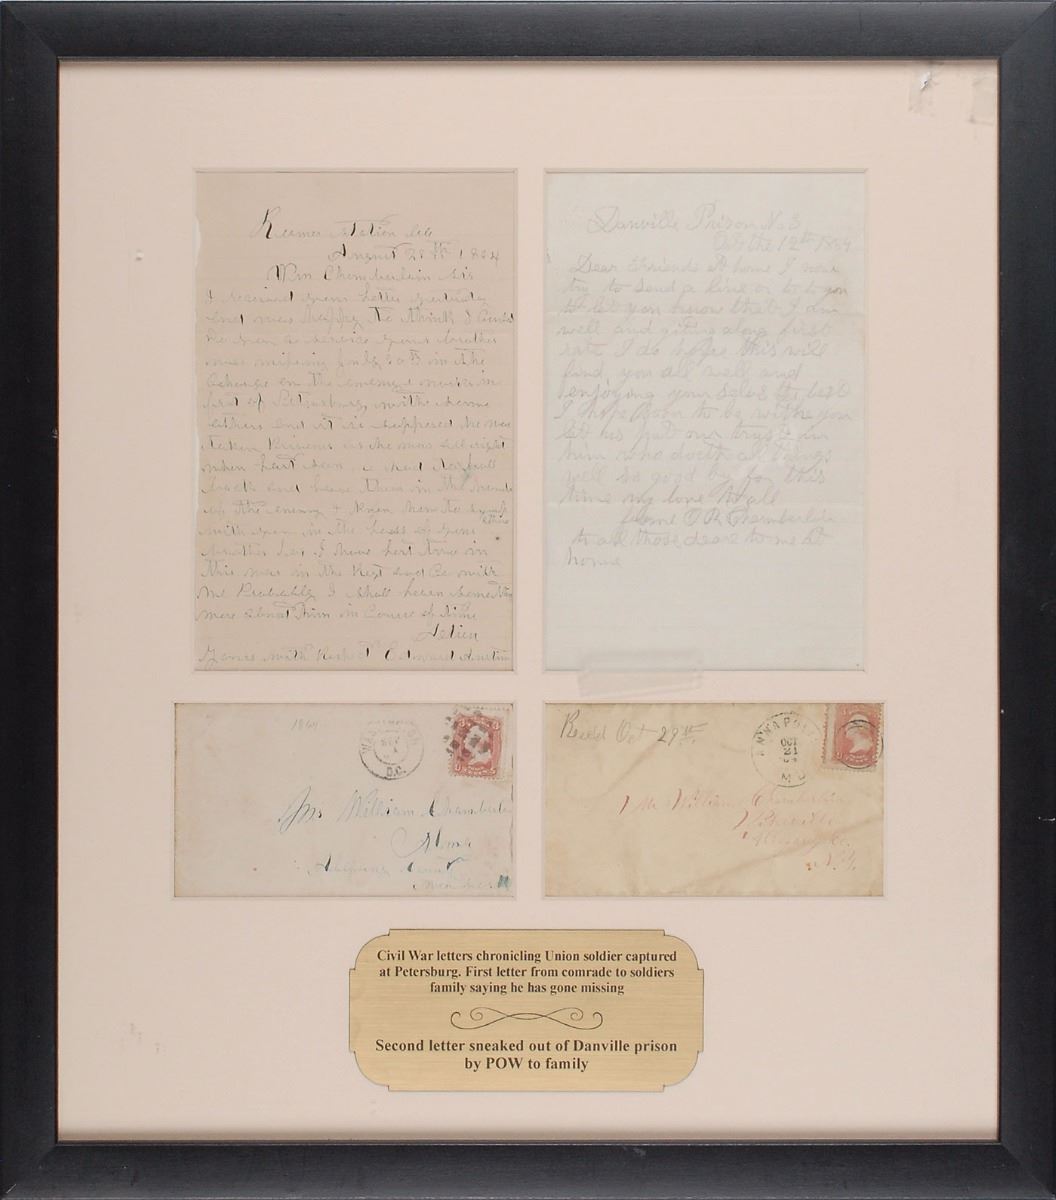 Station
August 28th 1864
Wm Chamberlain Sir
I received your letter yesterday
and was happy to think I could
be of service your brother
was missing July 30th in the
charge on the enemys works in
front of Petersburg with some
others and it is supposed he was
taken Prisoner as he was all right
when last seen, we had to fall
back and leave them in the hands
of the enemy &
with you in the loss of your
brother for I have lost
this war in the
me Probably I shall hear something
more about him in Course of time
Yours with Respect Edward Austin
Danville Prison No 3
Oct the 12th 1864
Dear Friends at home I now
try to send a line or to to you
to let you know that I am
well and giting along first
rate I do hope this will
find you all well and
enjoying your selvs the best
I hope soon to be with you
let us put our trust in
him who doeth all things
well so good by for this
time my love to all
from O R Chamberlin
to all those dear to me at
home
1864
WASHINGTON
D.C.
Mr William Chamberlin
Alma
Allegany
Recd Oct 29th
ANNAPOLIS
OCT
21
MD
Mr William Chamberlin
N.Y.
Civil War letters chronicling Union soldier captured
at Petersburg. First letter from comrade to soldiers
family saying he has gone missing
Second letter sneaked out of Danville prison
by POW to family